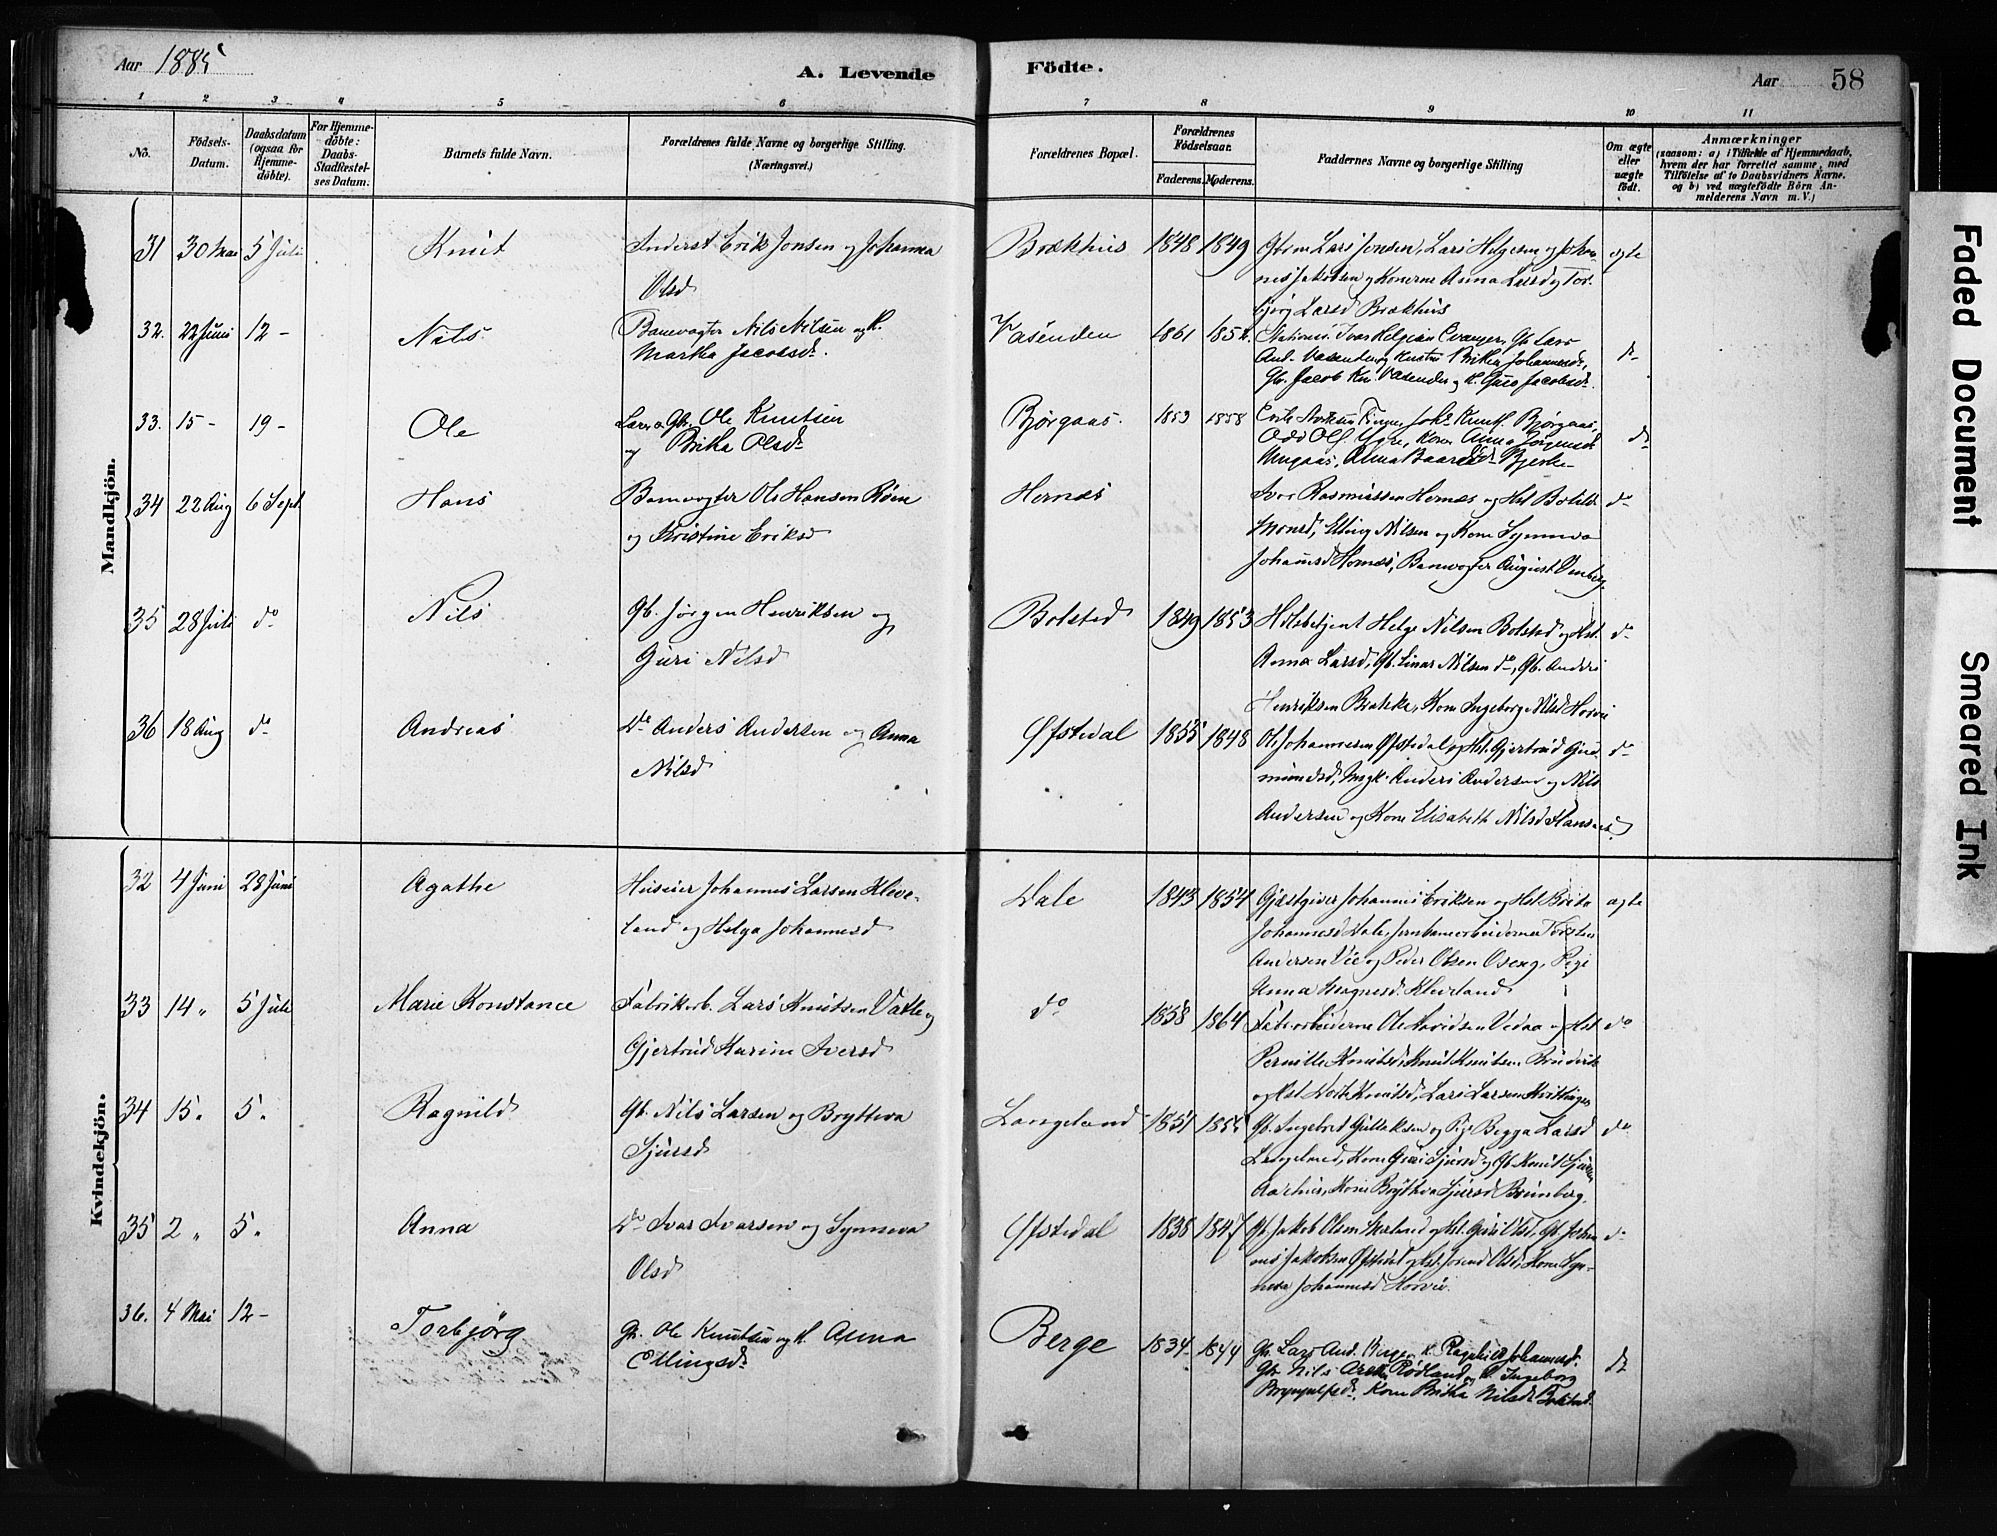 Aar 1885
A. Levende
Födte.
Aar
58
1 2 3 4 5 6 7 8 9 10 11
No.
Födsels-
Datum.
Daabsdatum
(ogsaa for
Hjemme-
döbte).
For Hjemme-
döbte:
Daabs-
Stadfæstel-
ses Datum.
Barnets fulde Navn.
Forældrenes fulde Navne og borgerlige Stilling.
(Næringsvei.)
Forældrenes Bopæl.
Forældrenes
Födselsaar.
Faderens. Moderens.
Faddernes Navne og borgerlige Stilling
Om ægte
eller
uægte
födt.
Anmærkninger
(saasom: a) i Tilfælde af Hjemmedaab,
hvem der har forrettet samme, med
Tilföielse af to Daabsvidners Navne,
og b) ved uægtefödte Börn An-
melderens Navn m. V.)
Mandkjön.
31 30 Mai 5 Juli Knut Inderst Erik Jonsen og Johanna
Olsd
Brækhus 1848 1849 Gbrm Lars Jonsen, Lars Helgesen og Johan-
nes Jakobsen og Konerne Anna Larsd og Tor-
bjørg Larsd Brækhus
ægte
32. 22 Juni 12 - Nils Banevogter Nils Nilsen og K.
Martha Jacobsd.
Vasenden 1861 Ivar Helgesen Evanger, Gb. Lars
And. Vasenden og Kirsten Britha Johannesd.,
Gb. Jacob Kn. Vasenden og K. Guro Jacobsd.
do
33. 15 - 19 - Ole Gb. Ole Knutsen
og Britha Olsd.
Bjørgaas. 1853 1858 Joh. Knut. Bjørgaas,
Odd Olf. Kone Anna Jørgensd.
Anna Baards
do
34 22 Aug 6 Sept. Hans Banevogter Ole Hansen Røine
og Kristine Eriksd
Hernes Ivar Rasmussen Hernes og Hst Botilde
Monsd, Elling Nilsen og Kone Synneva
Johannesd Hernes, Banevogter August
do
35 28 Juli do Nils Gb. Jørgen Henriksen og
Guri Nilsd
Bolstad 1849 1853 Helge Nilsen Bolstad og Hst.
Anna Larsd, Gb. Einar Nilsen do, Gb. Anders
Henriksen Kone Ingeborg Nilsd Horvie
do
36 18 Aug do Andreas Do Anders Andersen og Anna
Nilsd
Øfstedal 1855 1848 Ole Johannesen Øfstedal og Hst. Gjertrud Gud-
mundsd, Ungk. Anders Andersen og Nils
Andersen og Kone Elisabeth Nilsd
do
Kvindekjön.
32 4 Juni 28 Juni Agathe Husmier Johannes Larsen Kleve-
land og Helga Johannesd
Dale 1843 1854 Gjæstgiver Johannes Eriksen og Hst Brita
Johannesd Dale, Jernbanearbeiderne Torsten
Andersen Vie og Peder Olsen Oseng, Pige
Anna Magnesd. Kleveland
ægte
33 14 " 5 Juli Marie Konstance Fabrikarb. Lars Knutsen Vatle og
Gjertrud Karine Iversd
do 1858 1864 Fabr.arbeiderne Ole Davidsen Vedaa og Hst
Pernille Knutsd, Knut Knutsen
og Hst Knutsd, Lars Larsen
do
34 15 " 5 " Ragnild Gb. Nils Larsen og Brytteva
Sjursd
Langeland 1851 1855 Gb. Ingebret Gulleksen og Pige Begga Larsd
Langeland, Kone Guri Sjursd og Gb. Knut
Kone Brytteva Sjursd Brunberg.
do
35 2 " 5 " Anna Do Ivar Ivarsen og Synneva
Olsd
Øfstedal 1838 1847 Gb. Jakob Olsen og Hst. Guri Olsd, Gb. Johan-
nes Jakobsen Øfstedal og Hst. Olsd, Kone Syn-
neva Johannesd Horvie.
do
36. 4 Mai 12 - Torbjørg Gb. Ole Knutsen og K. Anna
Ellingsd.
Berge 1834. 1844 Gb. Lars And. Berge, K. Ragnhild Johannesd.
Gb. Nils Rødland og K. Ingeborg
Brynjulfsd. Kone Britha Nilsd. Bolstad.
do
Faded Document
Smeared Ink